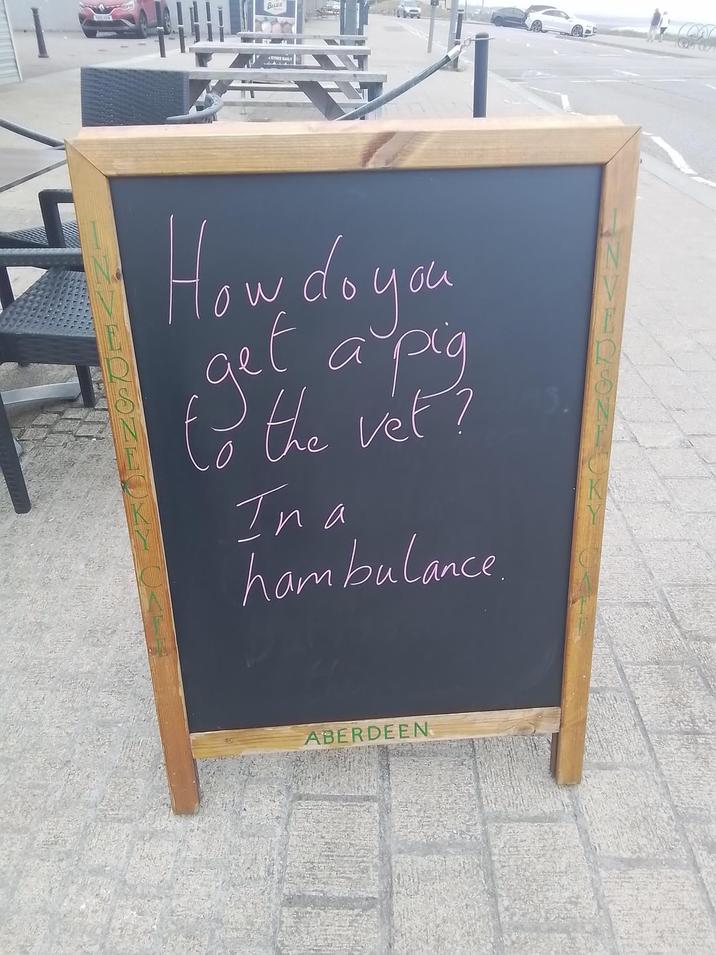 How do you
get a pig
to the vet?
In a
hambulance.
INVERSNECKY CAFE
INVERSNECKY CAFE
ABERDEEN